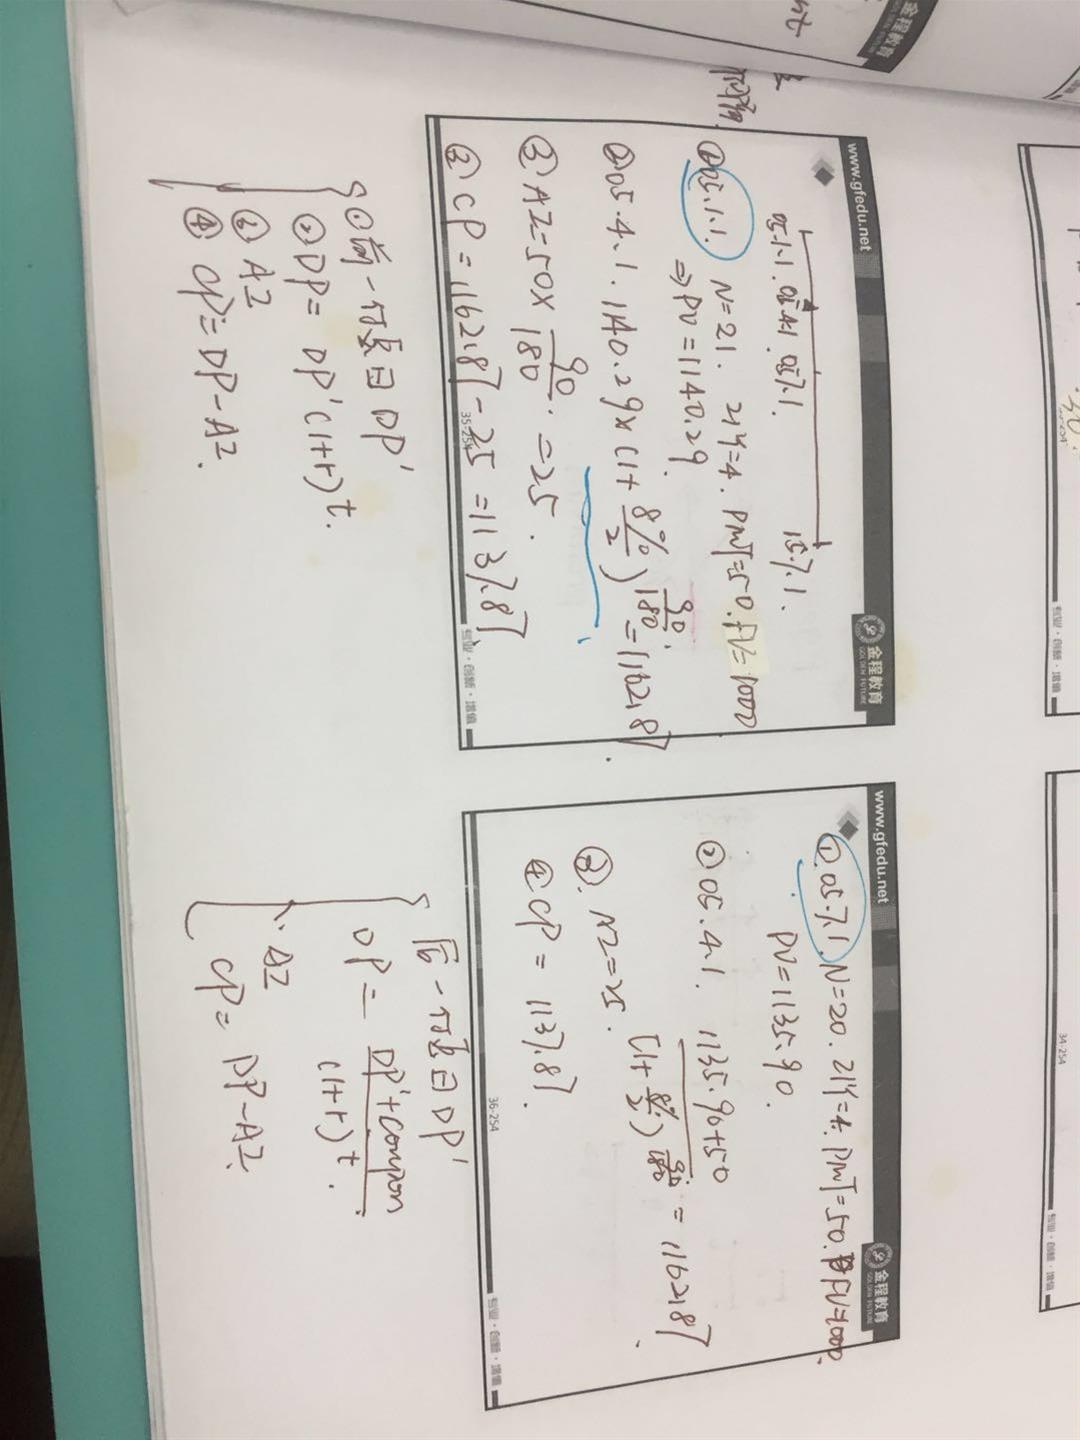 www.gfedu.net
金程教育
GOLDEN FUTURE
05.1.1. 05.4.1 05.7.1. 15.7.1.
① 05.1.1. N=21. I/Y=4. PMT=50. FV=1000
⇒ PV=1140.29.
② 05.4.1. 1140.29×(1+8%/2)^(90/180)=1162.87.
③ AI=50×90/180=25.
③ CP=1162.87-25=1137.87
35-254
① 前一付息日 DP'
② DP= DP'(1+r)^t.
③ AI
④ CP=DP-AI.
www.gfedu.net
金程教育
GOLDEN FUTURE
①. 05.7.1. N=20. I/Y=4. PMT=50. FV=1000.
PV=1135.90.
② 05.4.1. (1135.90+50)/(1+8%/2)^(90/180)=1162.87.
③. AI=25.
④ CP= 1137.87.
36-254
后一付息日 DP'
DP= (DP'+coupon)/(1+r)^t.
AI
CP= DP-AI.
34-254